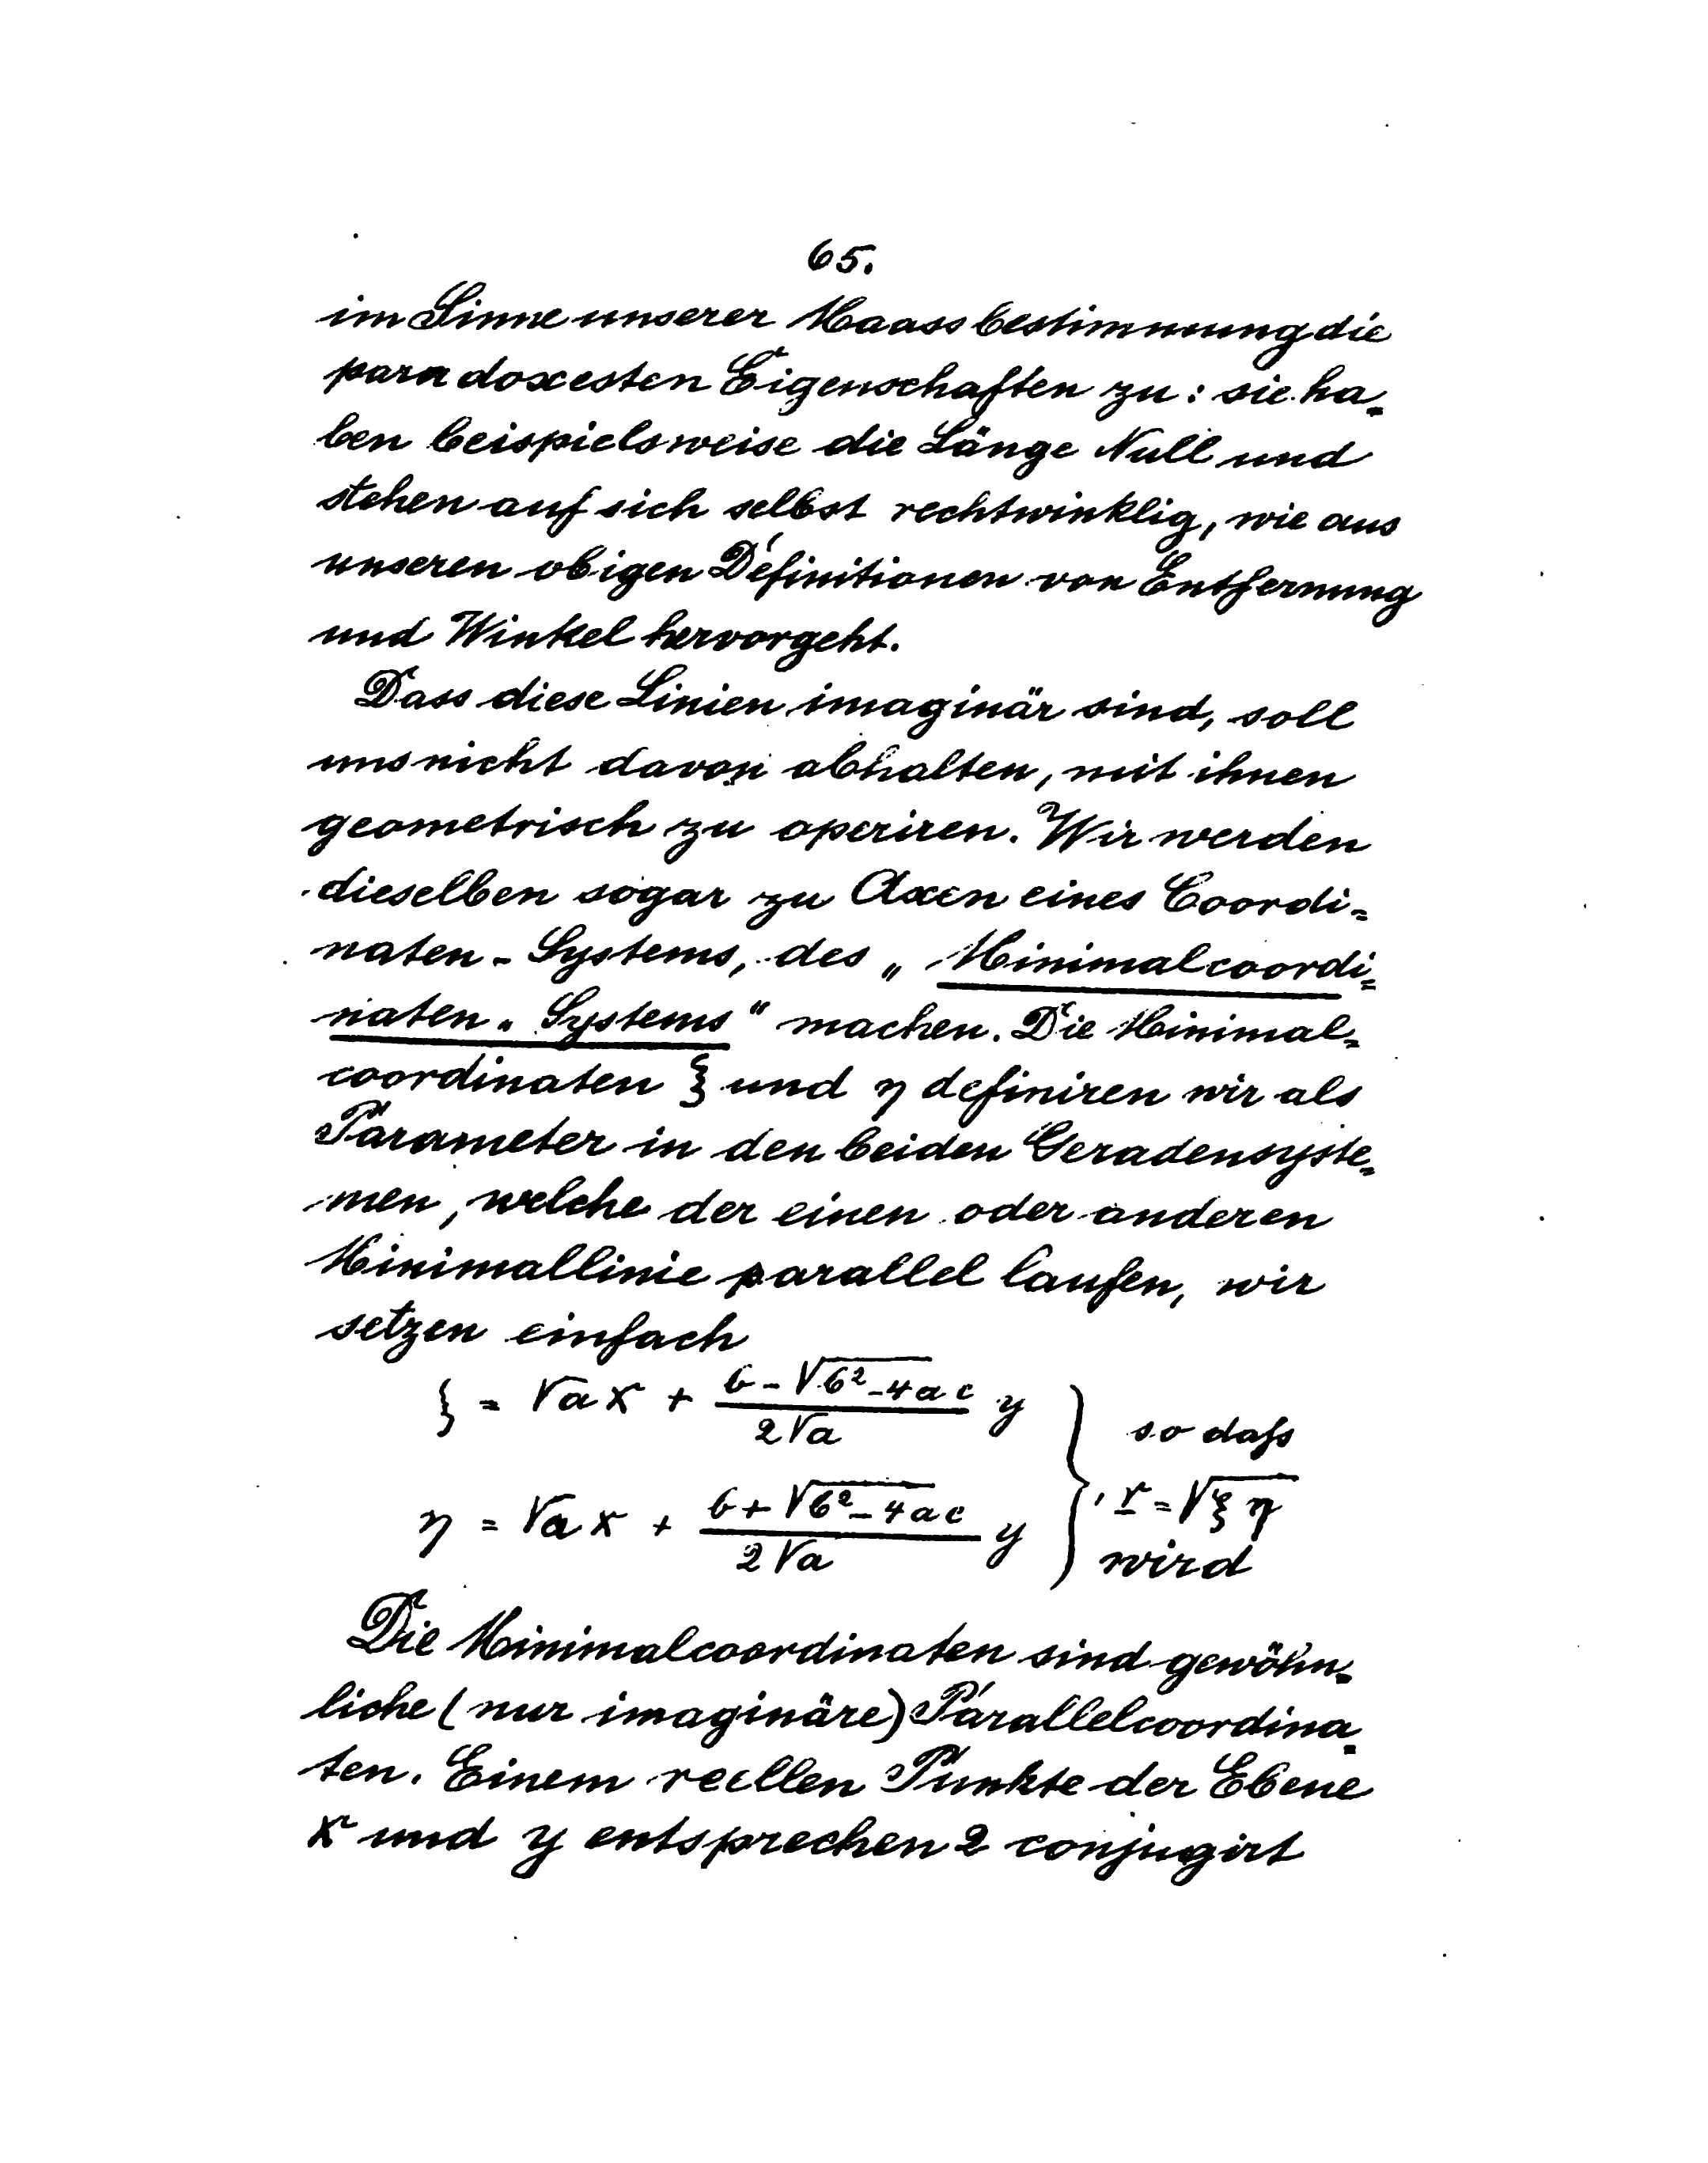 65.
im Sinne unserer Maassbestimmung die
paradoxesten Eigenschaften zu: sie ha=
ben beispielsweise die Länge Null und
stehen auf sich selbst rechtwinklig, wie aus
unseren obigen Definitionen von Entfernung
und Winkel hervorgeht.
Dass diese Linien imaginär sind, soll
uns nicht davon abhalten, mit ihnen
geometrisch zu operiren. Wir werden
dieselben sogar zu Axen eines Coordi=
naten-Systems, des „Minimalcoordi=
naten-Systems“ machen. Die Minimal=
coordinaten ξ und η definiren wir als
Parameter in den beiden Geradensyste=
men, welche der einen oder anderen
Minimallinie parallel laufen, wir
setzen einfach
ξ = √a x + (b - √(b² - 4ac))/(2√a) y } so daß
η = √a x + (b + √(b² - 4ac))/(2√a) y } , r = √(ξ η)
wird
Die Minimalcoordinaten sind gewöhn=
liche (nur imaginäre) Parallelcoordina=
ten. Einem reellen Punkte der Ebene
x und y entsprechen 2 conjugirt